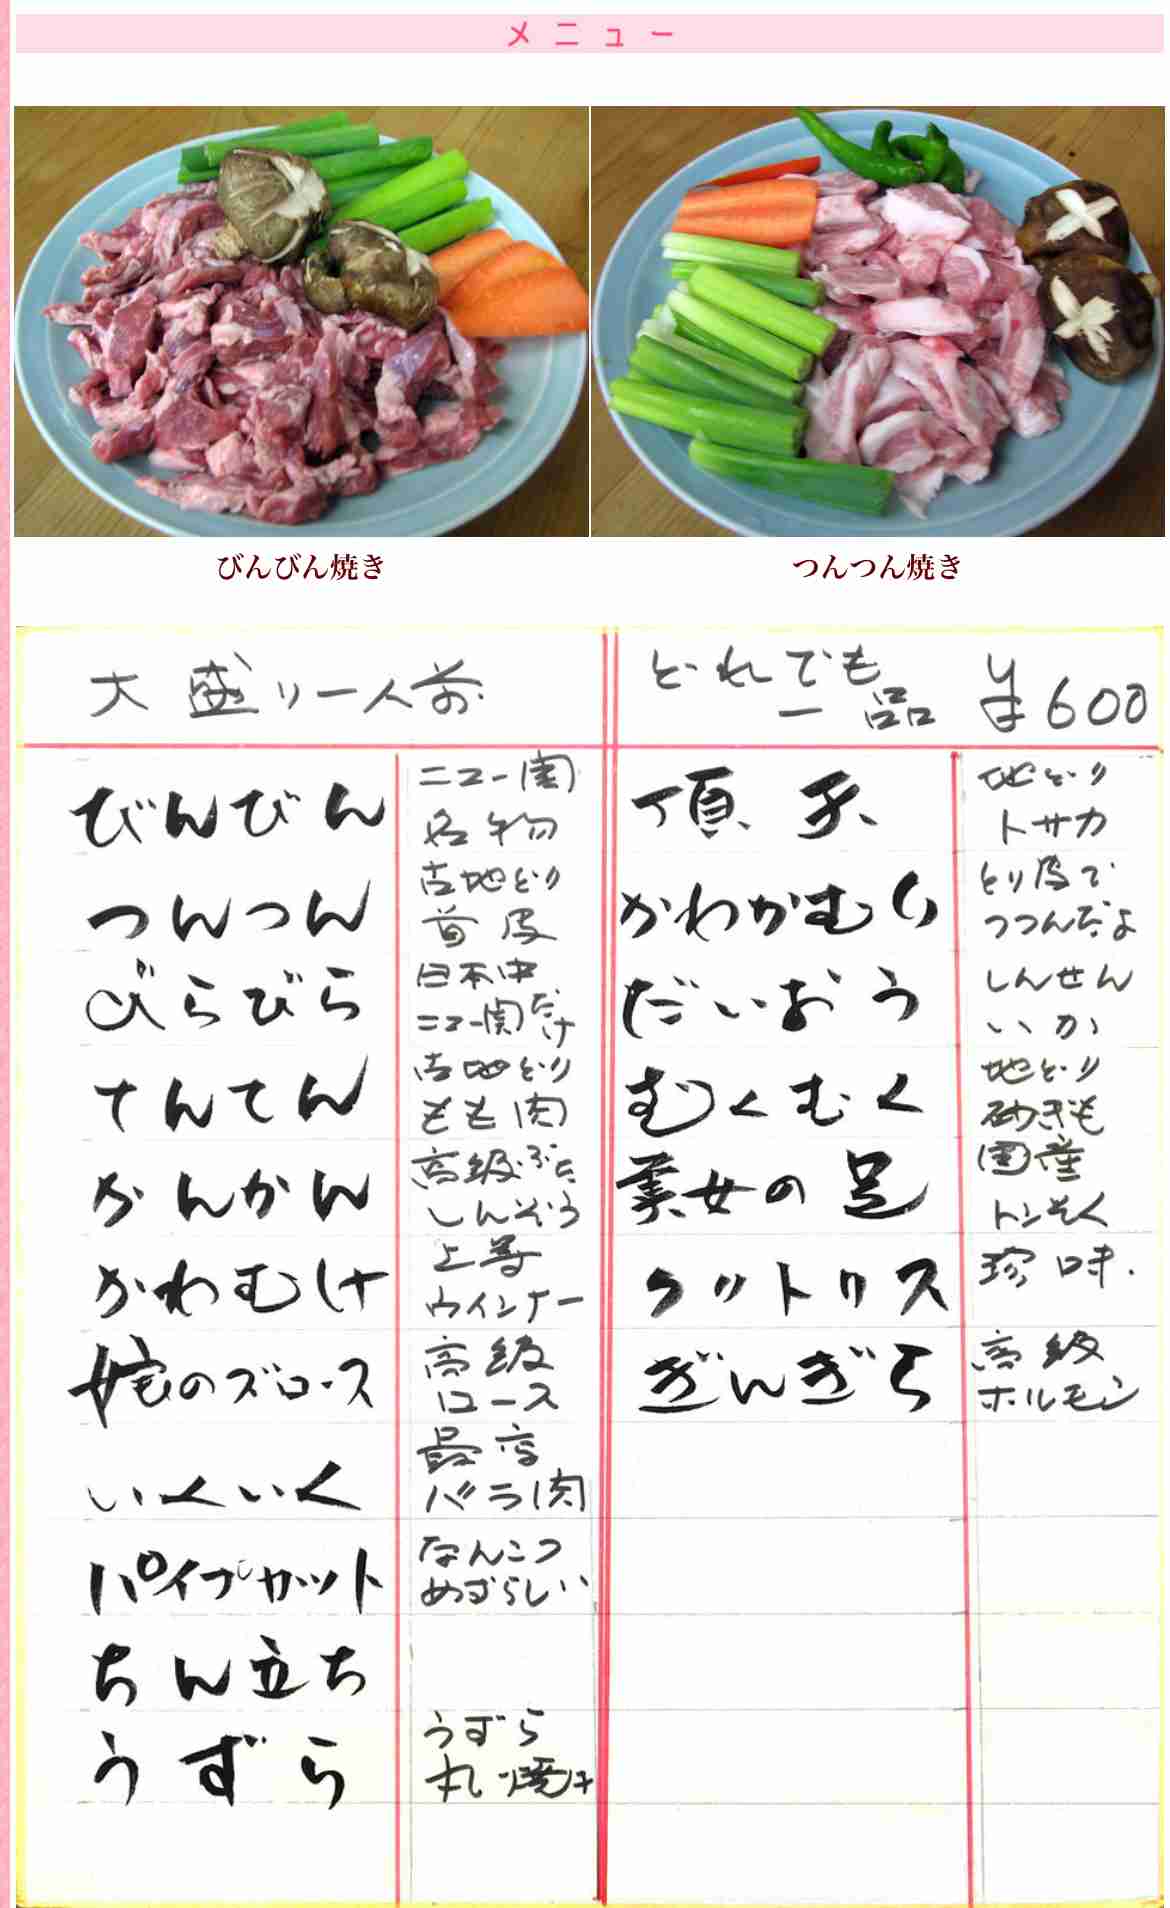 メニュー
びんびん焼き
つんつん焼き
大盛り一人前
どれでも
一品
¥600
びんびん
ニュー関
名物
つんつん
古地どり
首皮
びらびら
日本中
ニュー関だけ
てんてん
古地どり
もも肉
かんかん
高級ぶた
しんぞう
かわむけ
上等
ウインナー
姥のズロース
高級
ロース
いくいく
最高
バラ肉
パイプカット
なんこつ
めずらしい
ちん立ち
うずら
うずら
丸焼け
頂天
地どり
トサカ
かわかむり
とり皮で
つつんだよ
だいおう
しんせん
いか
むくむく
地どり
砂ぎも
美女の足
国産
トンそく
クットリス
珍味.
ぎんぎら
高級
ホルモン